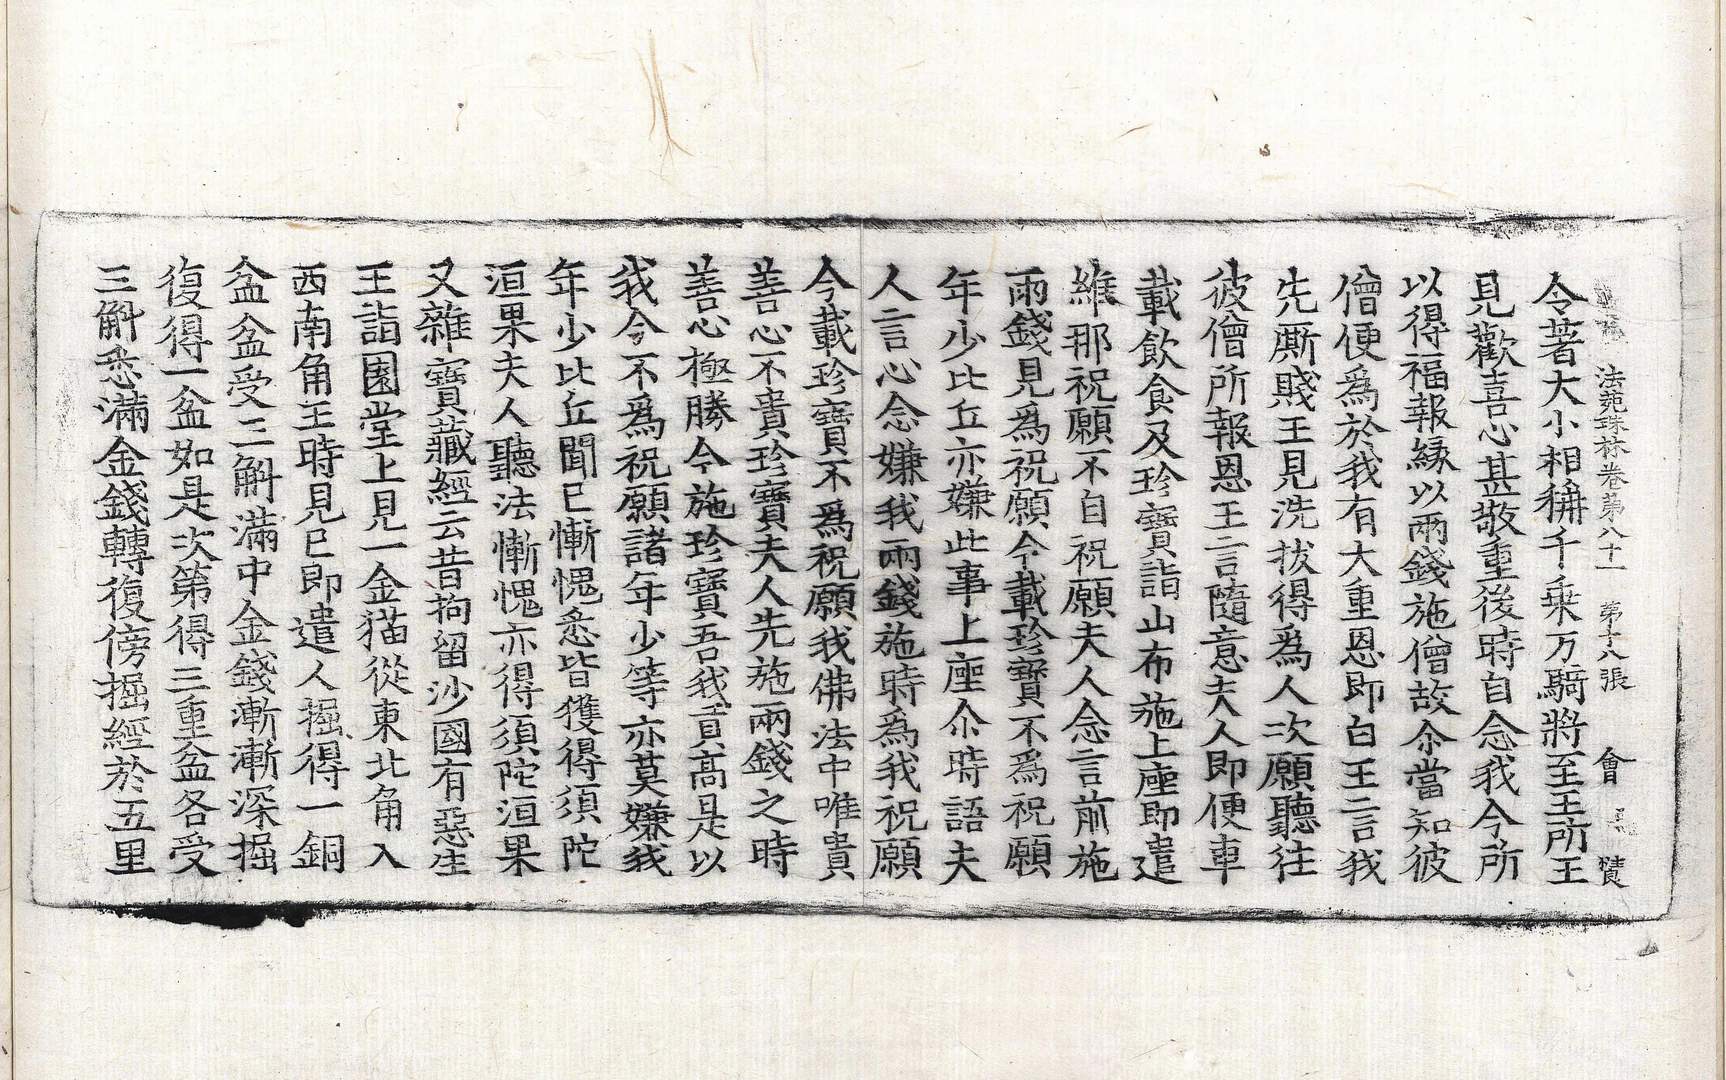 法苑珠林卷第八十一 第十八張 會
令著大小相稱千乗万騎將至王所王
見歡喜心甚敬重後時自念我今所
以得福報縁以兩錢施僧故尒當知彼
僧便爲於我有大重恩即白王言我
先厮賤王見洗拔得爲人次願聽往
彼僧所報恩王言隨意夫人即便車
載飲食及珍寶詣山布施上座即遣
維那祝願不自祝願夫人念言前施
兩錢見爲祝願今載珍寶不爲祝願
年少比丘亦嫌此事上座尒時語夫
人言心念嫌我兩錢施時爲我祝願
今載珍寶不爲祝願我佛法中唯貴
善心不貴珍寶夫人先施兩錢之時
善心極勝今施珍寶吾我貢高是以
我今不爲祝願諸年少等亦莫嫌我
年少比丘聞已慚愧悉皆獲得須陀
洹果夫人聽法慚愧亦得須陀洹果
又雜寶藏經云昔拘留沙國有惡生
王詣園堂上見一金猫從東北角入
西南角王時見已即遣人掘得一銅
盆盆受三斛滿中金錢漸漸深掘
復得一盆如是次第得三重盆各受
三斛悉滿金錢轉復傍掘經於五里